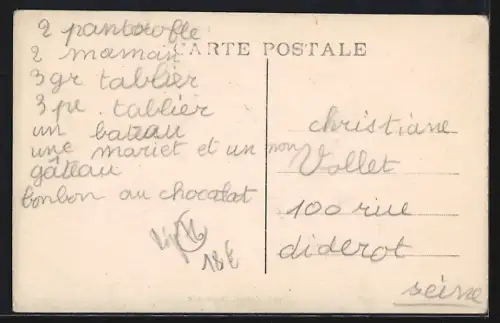 2 pantoufle
2 maman
CARTE POSTALE
3 gr tablier
3 pe. tablier
un bateau
une mariet et un mon
gâteau
bonbon au chocolat
18€
christiane
Vallet
100 rue
diderot
seine